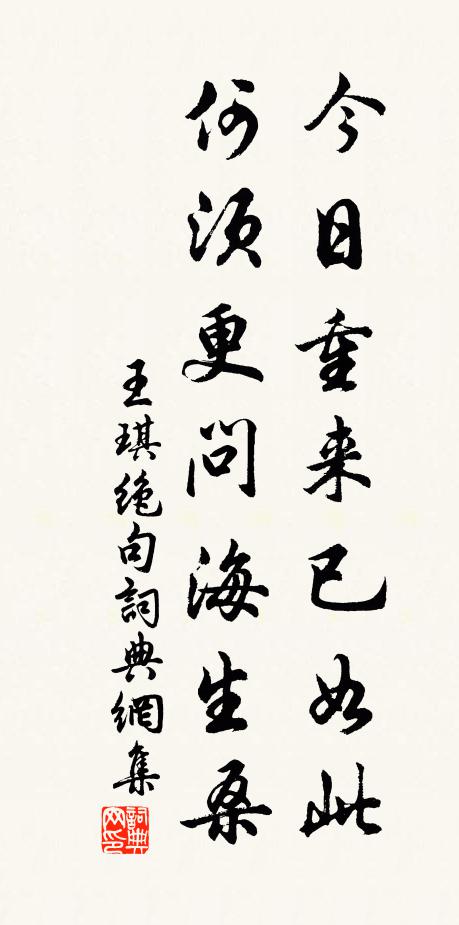 今日重来已如此
何須更問海生桑
王琪绝句詞典網集
詞典网印